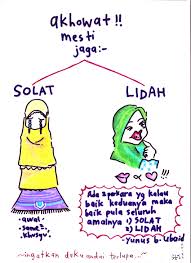 akhowat!!
mesti
jaga:-
SOLAT
LIDAH
-awal-
-khusyu'-
Ada 2 perkara yg kalau
baik keduanya maka
baik pula seluruh
amalnya 1) SOLAT
2) LIDAH
-Yunus b. Ubaid
~ingatkan daku andai terlupa..~